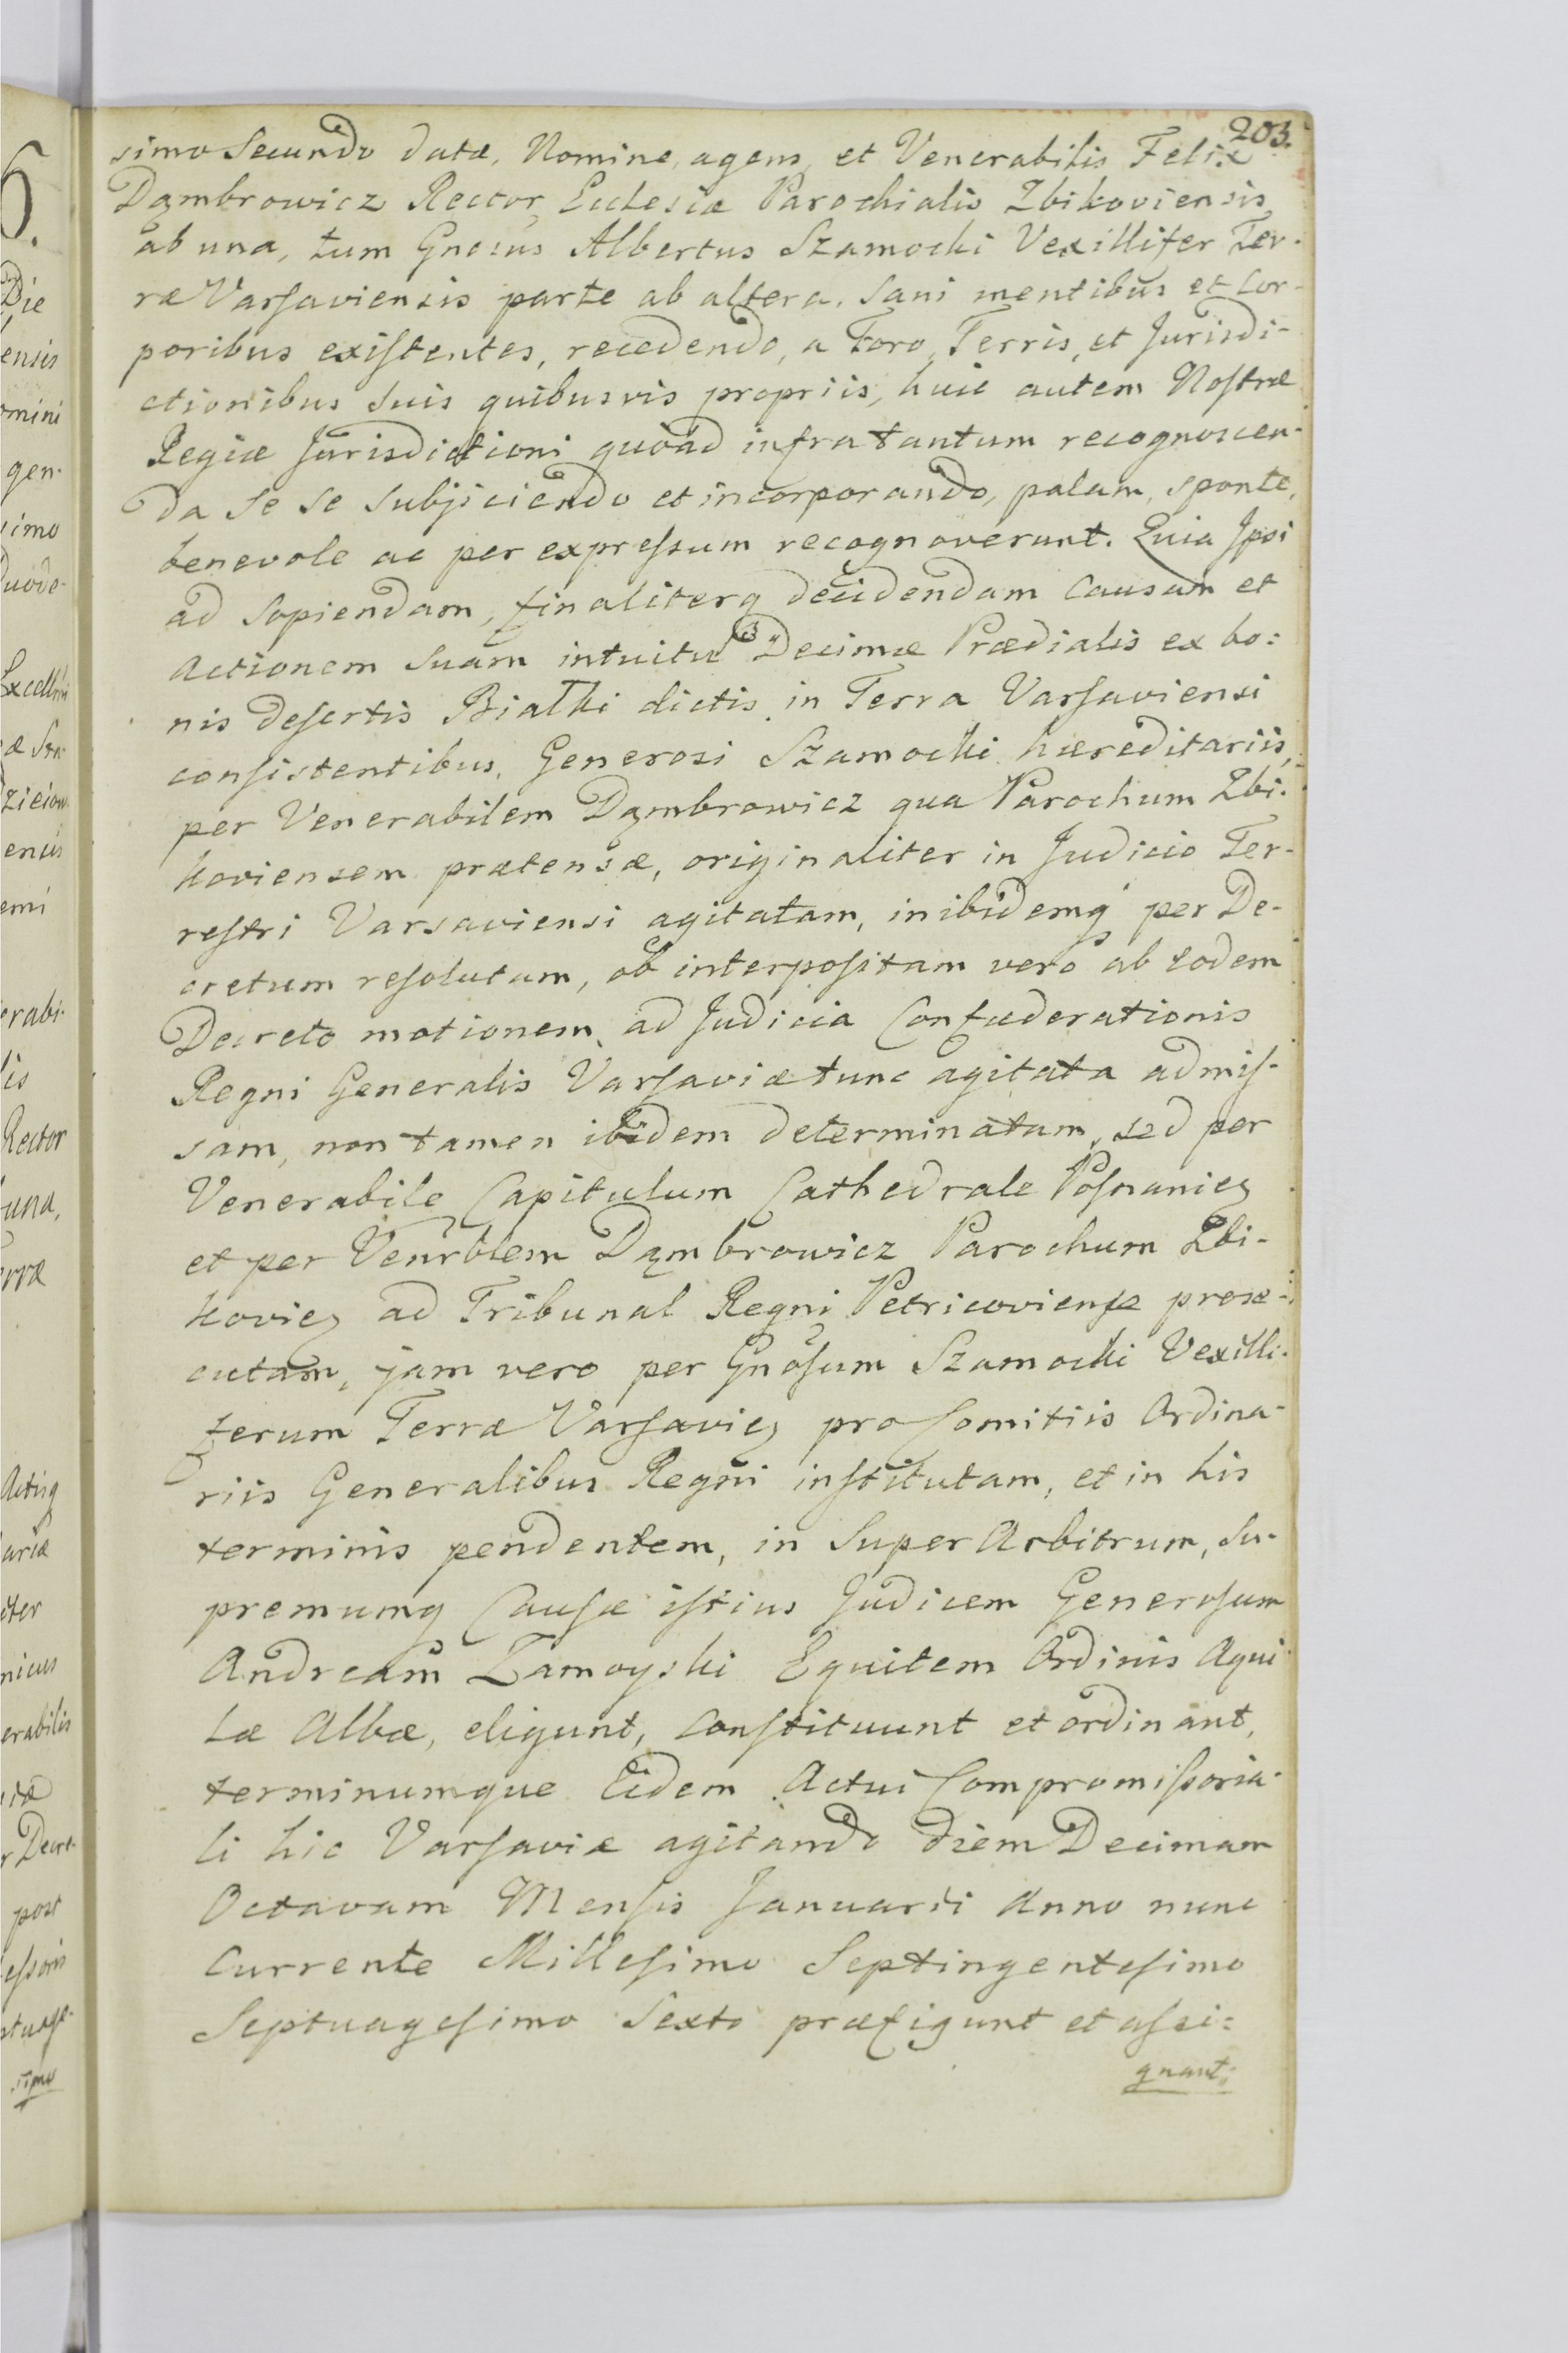 203.
simo Secundo datæ, Nomine agens, et Venerabilis Felix
Dąmbrowicz Rector Ecclesiæ Parochialis Zbikoviensis
ab una, tum Gnosus Albertus Szamocki Vexillifer Ter-
ræ Varsaviensis parte ab altera. Sani mentibus et Cor-
poribus existentes, recedendo, a Foro, Terris, et Jurisdi-
ctionibus suis quibusvis propriis, huic autem Nostræ
Regiæ Jurisdictioni quoad infra tantum recognoscen-
da se se subjiciendo et incorporando, palam, sponte,
benevole ac per expressum recognoverunt. Quia Ipsi
ad sopiendam, finaliterq decidendam Causam et
Actionem suam intuitu Decimæ Prædialis ex bo:
nis desertis Białki dictis in Terra Varsaviensi
consistentibus, Generosi Szamocki hæreditariis,
per Venerabilem Dąmbrowicz qua Parochum Zbi-
koviensem prætensæ, originaliter in Judicio Ter-
restri Varsaviensi agitatam, inibidemq per De-
cretum resolutam, ob interpositam vero ab eodem
Decreto motionem, ad Judicia Confæderationis
Regni Generalis Varsaviæ tunc agitata admis-
sam, non tamen ibidem determinatam, sed per
Venerabile Capitulum Cathedrale Posnanien
et per Venrblem Dąmbrowicz Parochum Zbi-
kovien ad Tribunal Regni Petricoviense prose-
cutam, jam vero per Gnosum Szamocki Vexilli-
ferum Terræ Varsavien pro Comitiis Ordina-
riis Generalibus Regni institutam, et in his
terminis pendentem, in Super Arbitrum, Su-
premumq Causæ istius Judicem Generosum
Andream Zamoyski Equitem Ordinis Aqui-
læ Albæ, eligunt, Constituunt et ordinant,
terminumque Eidem Actui Compromissoria-
li hic Varsaviæ agitando diem Decimam
Octavam Mensis Januarii Anno nunc
Currente Millesimo Septingentesimo
Septuagesimo Sexto præfigunt et assi:
gnant;